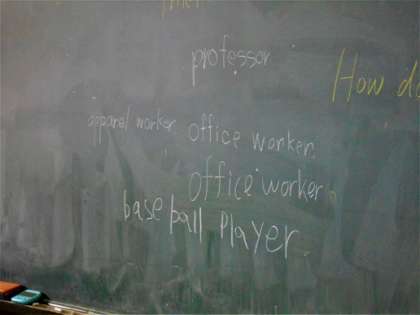 professor
How do
apparel worker office worker.
office worker
base ball Player